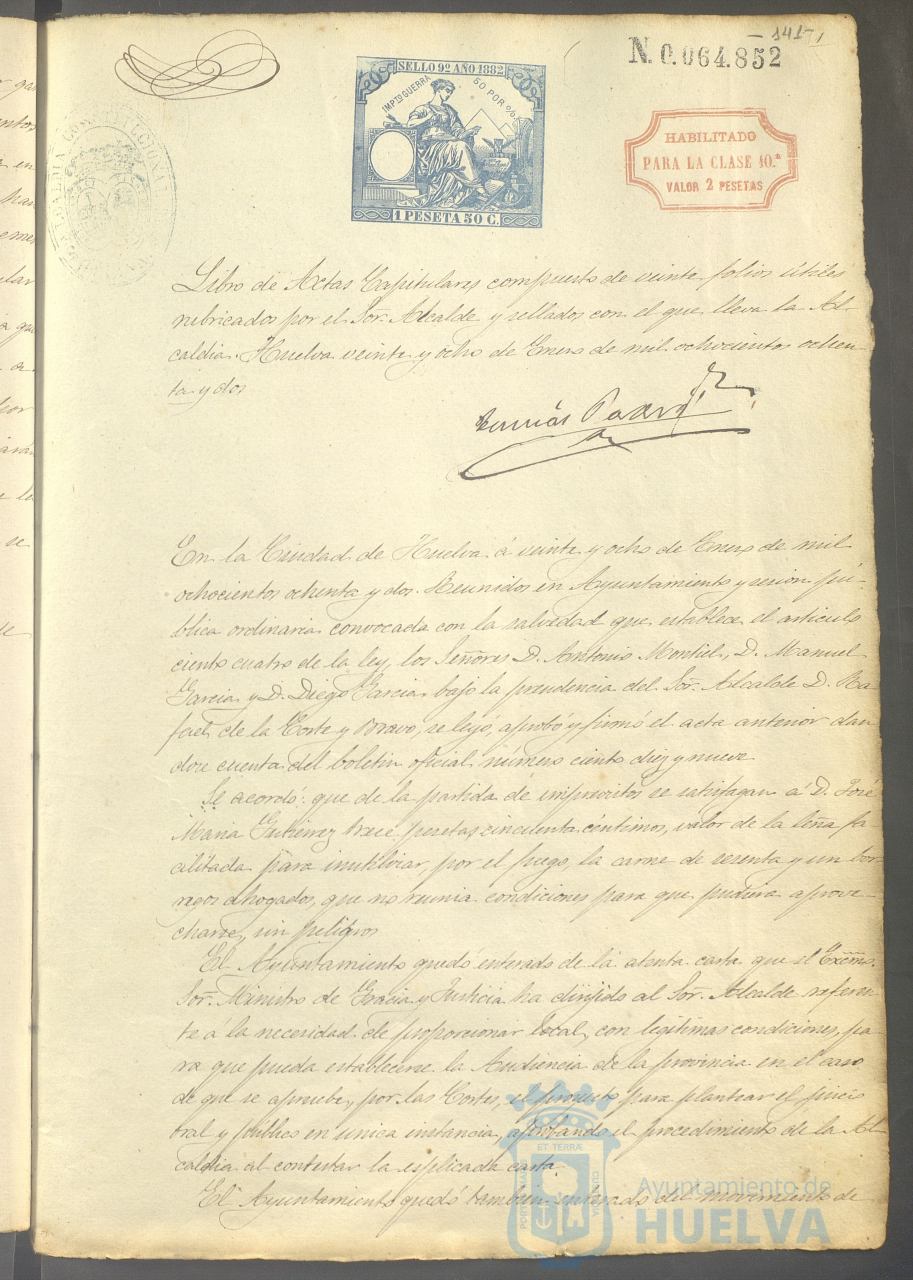 141
N. 0.064.852
SELLO 9º AÑO 1882
IMPTO GUERRA 50 POR %
1 PESETA 50 C.
HABILITADO
PARA LA CLASE 10.ª
VALOR 2 PESETAS
ALCALDIA CONSTITUCIONAL
Libro de Actas Capitulares compuesto de veinte folios útiles
rubricados por el Sor. Alcalde y sellados con el que lleva la Al-
caldia. Huelva veinte y ocho de Enero de mil ochocientos ochen-
ta y dos
En la Ciudad de Huelva á veinte y ocho de Enero de mil
ochocientos ochenta y dos. Reunidos en Ayuntamiento y sesion pú-
blica ordinaria convocada con la salvedad que establece el articulo
ciento cuatro de la ley, los Señores D. Antonio Montiel, D. Manuel
Garcia y D. Diego Garcia bajo la presidencia del Sor. Alcalde D. Ra-
fael de la Corte y Bravo, se leyó, aprobó y firmó el acta anterior dan
dose cuenta del boletin oficial número ciento diez y nueve
Se acordó: que de la partida de imprevistos se satisfagan á D. José
Maria Gutierrez trece pesetas cincuenta céntimos, valor de la leña fa-
cilitada para inutilizar, por el fuego, la carne de y un bor-
regos ahogados, que no reunia condiciones para que pudiera aprove-
charse, sin peligros
El Ayuntamiento quedó enterado de la atenta carta que el Excmo.
Sor. Ministro de Gracia y Justicia ha dirijido al Sor. Alcalde referen-
te á la necesidad de proporcionar local, con legitimas condiciones, pa-
ra que pueda establecerse la Audiencia de la provincia en el caso
de que se apruebe, por las Cortes, el proyecto para plantear el juicio
oral y público en unica instancia, aprobando el procedimiento de la Al-
caldia al contestar la esplicada carta.
El Ayuntamiento quedó tambien enterado del movimiento de
Ayuntamiento de
HUELVA